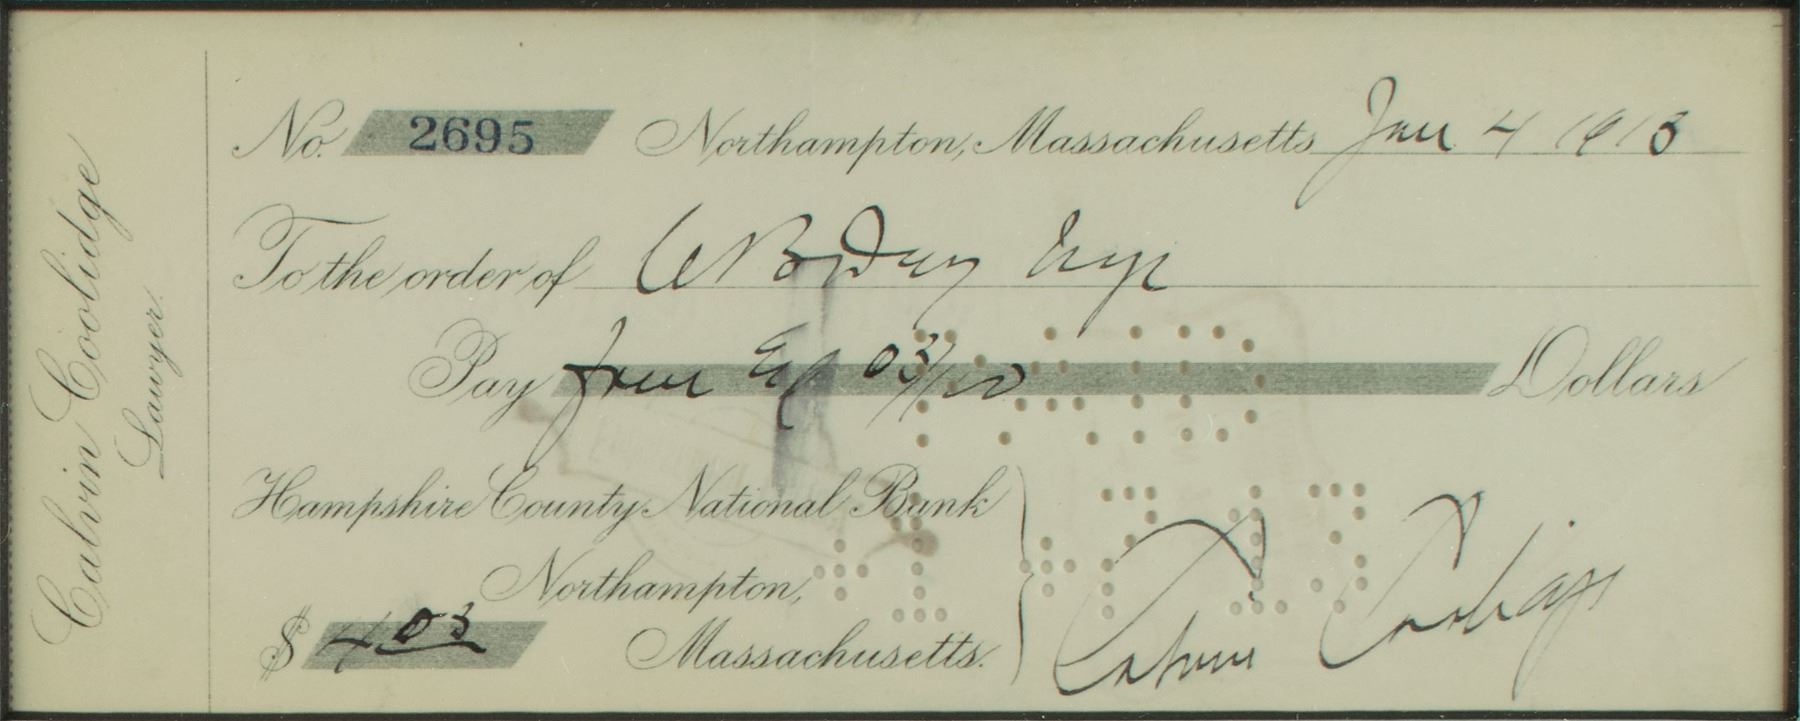 Calvin Coolidge
Lawyer.
No. 2695 Northampton, Massachusetts Jan 4 1913
To the order of
Pay Four & 03/100 Dollars
Hampshire County National Bank
Northampton,
$ 4 03 Massachusetts.
Calvin Coolidge
PAID
1 7 13